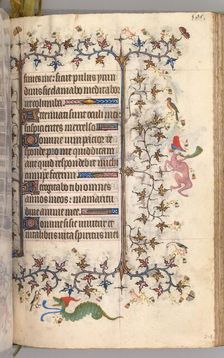 finies me: sicut pullus yrun
dinis sic clamabo meditabor
ut columba
Attenuati sunt oculi mei
suspicientes in excelso
Domine vim patior re
sponde pro me quid dicam
aut quid respondebit michi
cum ipse fecerim
Recogitabo tibi omnes
annos meos: in amaritu
dine anime mee
Domine si sic vivitur et
in talibus vita spiritus mei